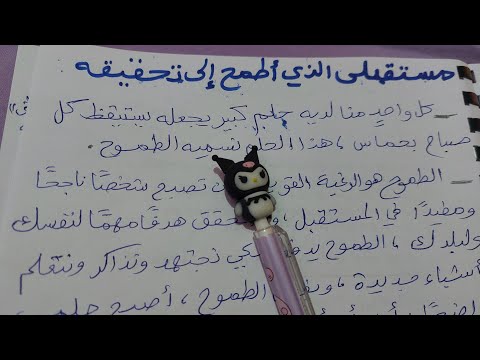 مستقبلي الذي أطمح إلى تحقيقه
_ كل واحدٍ منا لديه حلم كبير يجعله يستيقظ كل
صباح بحماس، هذا الحلم نسميه الطموح.
_ الطموح هو الرغبة القو أن تصبح شخصًا ناجحًا
ومفيدًا في المستقبل، و تحقق هدفًا مهمًا لنفسك
ولبلدك، الطموح يد كي نجتهد ونذاكر ونتعلم
أشياء جديدة، و الطموح، أصبح